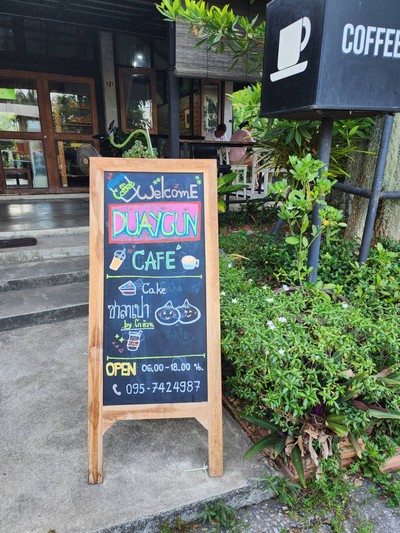 COFFEE
WelcomE
DUAYGUN
CAFE
Cake
ซาลาเปา
OPEN 06.00-18.00 น.
095-7424987